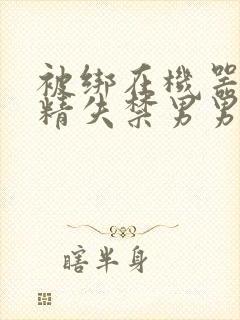 被绑在機器
精失禁男男
瞎半身